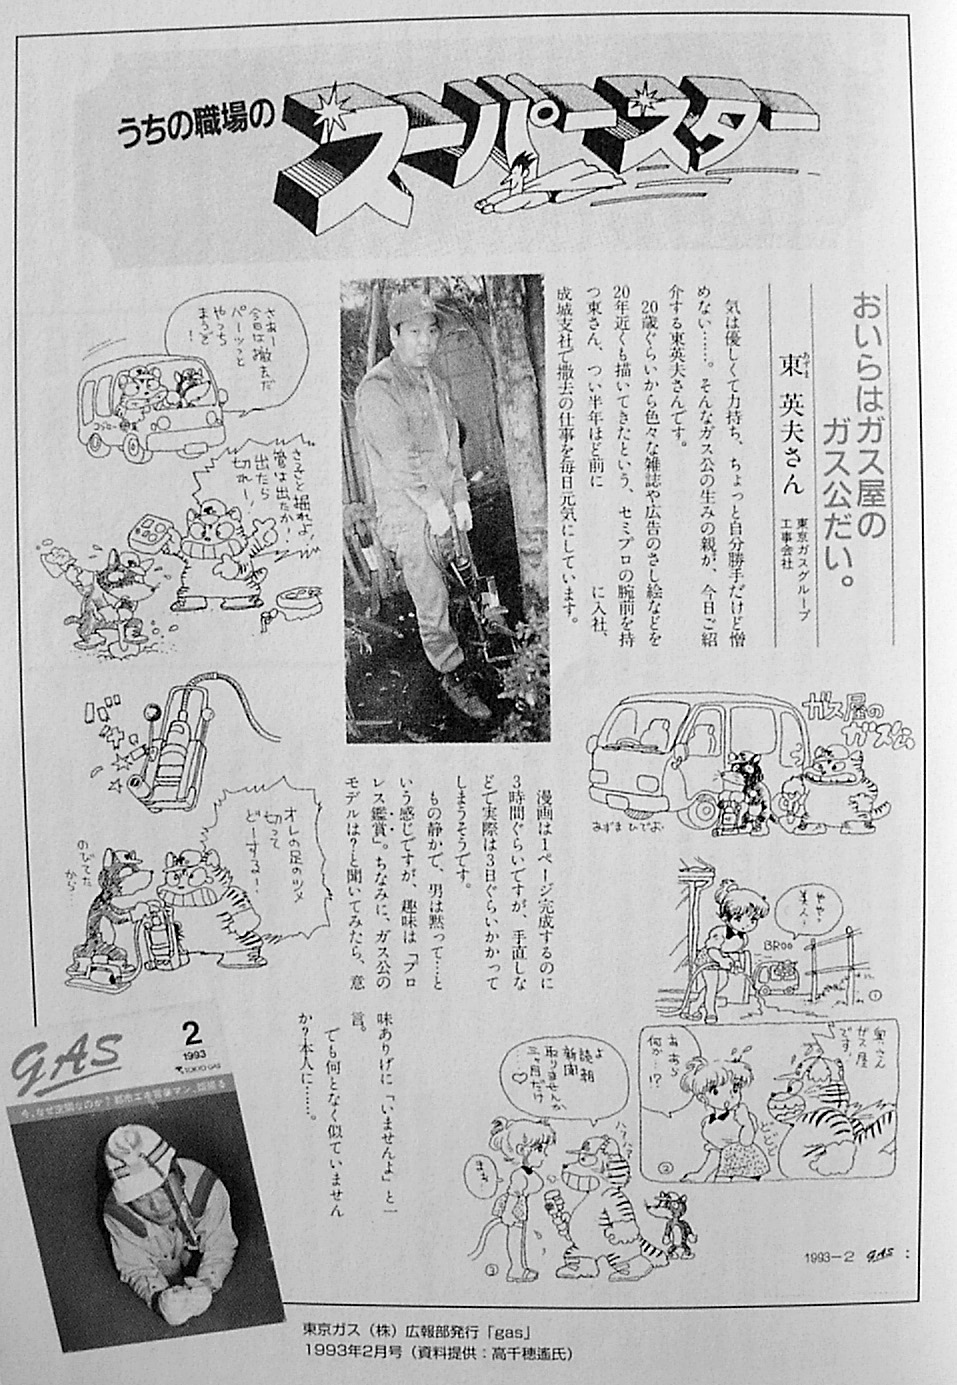 うちの職場の
スーパースター
おいらはガス屋の
ガス公だい。
あずま
東 英夫さん
東京ガスグループ
工事会社
気は優しくて力持ち、ちょっと自分勝手だけど憎
めない……。そんなガス公の生みの親が、今日ご紹
介する東英夫さんです。
20歳ぐらいから色々な雑誌や広告のさし絵などを
20年近くも描いてきたという、セミプロの腕前を持
つ東さん、つい半年ほど前に　　　　に入社、
成城支社で撤去の仕事を毎日元気にしています。
さあー
今日は撤去だ
パーッと
やっち
まうぞ
!
さっさと掘れよ!
管は出たか!
出たら
切れー!
オレの足のツメ
切って
どーするー!
のびてた
から…
ガス屋の
ガス公
あずまひでお
漫画は1ページ完成するのに
3時間ぐらいですが、手直しな
どで実際は3日ぐらいかかって
しまうそうです。
もの静かで、男は黙って……と
いう感じですが、趣味は「プロ
レス鑑賞」。ちなみに、ガス公の
モデルは?と聞いてみたら、意
味ありげに「いませんよ」と一
言。
でも何となく似ていません
か?本人に……。
やや!
美人!
BROO
①
奥さん
ガス屋
です!
あ あら
何か…!?
②
よ
読朝
新聞
取りませんか
三ヶ月だけ
♡
まあ
③
GAS
2
1993
TOKYO GAS
1993－2 GAS
東京ガス（株）広報部発行「gas」
1993年2月号（資料提供：高千穂遙氏）